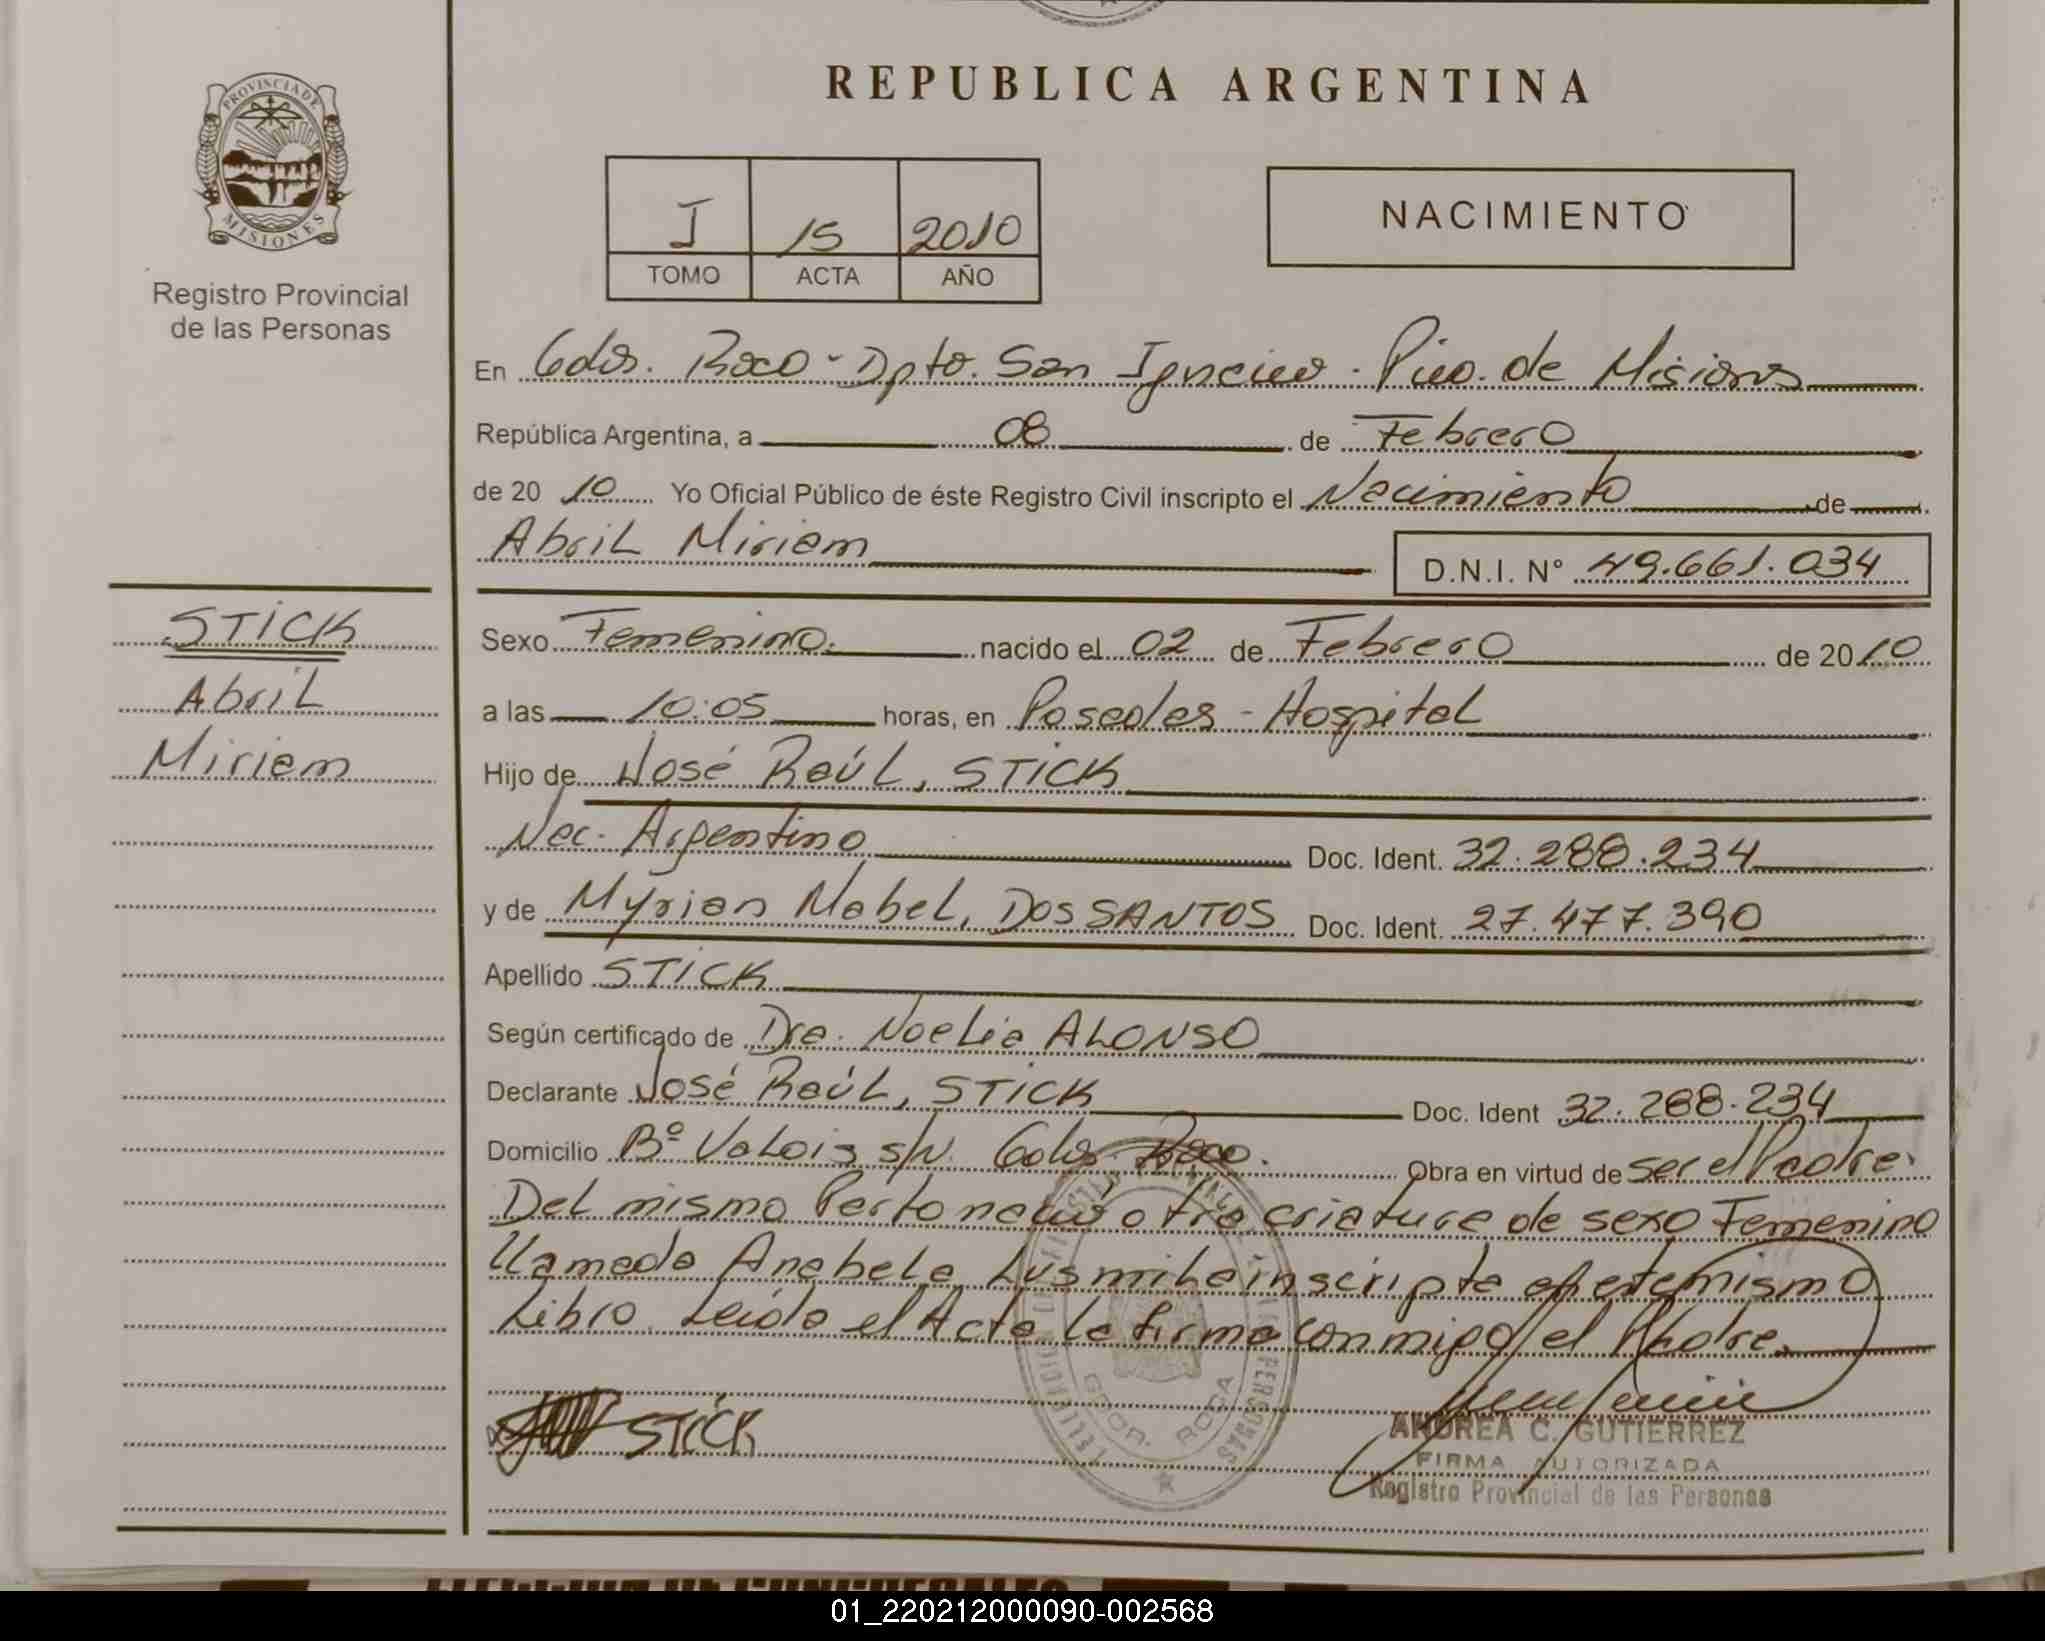 REPUBLICA ARGENTINA
PROVINCIA DE
MISIONES
Registro Provincial
de las Personas
I 15 2010
TOMO ACTA AÑO
NACIMIENTO
En Gdor. Roca - Dpto. San Ignacio - Pcia. de Misiones
República Argentina, a 08 de Febrero
de 2010 Yo Oficial Público de éste Registro Civil inscripto el Nacimiento de
Abril Miriam D.N.I. N° 49.661.034
STICK
Abril
Miriam
Sexo Femenino. nacido el 02 de Febrero de 2010
a las 10:05 horas, en Posadas - Hospital
Hijo de José Raúl, STICK
Nac. Argentino Doc. Ident. 32.288.234
y de Myrian Mabel, DOS SANTOS Doc. Ident. 27.477.390
Apellido STICK
Según certificado de Dra. Noelia ALONSO
Declarante José Raúl, STICK Doc. Ident 32.288.234
Domicilio Bº Valois s/N. Gdor. Roca. Obra en virtud de ser el Padre.
Del mismo Parto nació otra criatura de sexo Femenino
llamada Anabela Lusmila inscripta en este mismo
Libro. Leída el Acta la firma conmigo el Padre.
STICK
GDOR. ROCA
ANDREA C. GUTIERREZ
FIRMA AUTORIZADA
Registro Provincial de las Personas
01_220212000090-002568